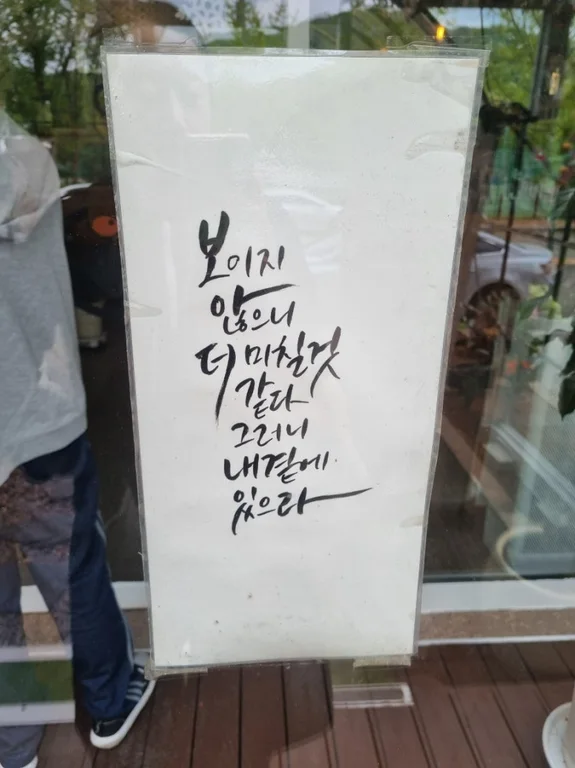 보이지
않으니
더 미칠것
같다
그러니
내곁에
있으라